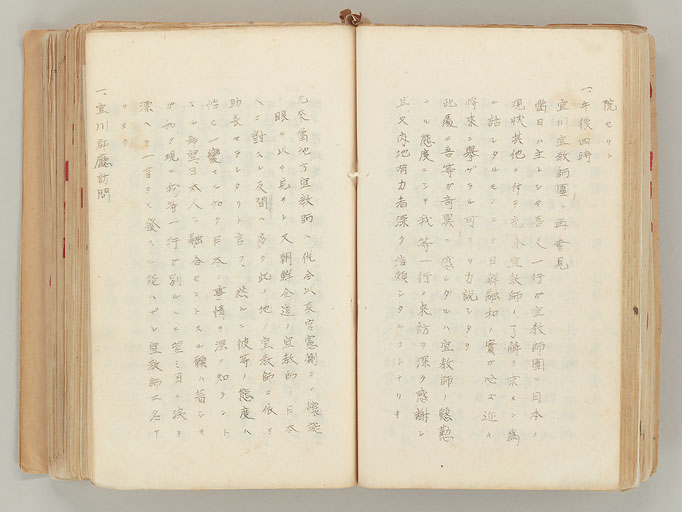 院セリト
一、午後四時
宣川宣教師團ト再會見
當日ハ主トシテ吾人一行ガ宣教師團ニ日本ノ
現状其他ニ付キ充分宣教師ノ了解ヲ求メン為
ニ話シタルモノニシテ日鮮融和ノ實ガ必ズ近キ
將来ニ擧ガル可キヲ力説シタリ
此處ニ吾等ガ奇異ニ感ジタルハ宣教師ノ慇懃
ナル態度ニシテ我等一行ノ来訪ヲ深ク感謝シ
且又内地有力者深ク信頼シタルコトナリキ
元来當地方宣教師ハ併合以来官憲側ヨリ懐疑
ノ眼ヲ以テ見ラレ又朝鮮全道ノ宣教師ノ日本
人ニ對スル反間ハ多ク此ノ地ノ宣教師ニ依テ
助長セラレタリト言フ、然ルニ彼等ノ態度ハ
一變
日本ノ事情ヲ深ク知ラント
希望日本人ニ融合セントスル
現ニ我等一行ガ別ルルニ望ミ目ニ涙ヲ
漂ヘテ一言モ發スル能ハザル宣教師二名ア
リタリ
一、宣川郡廳訪問